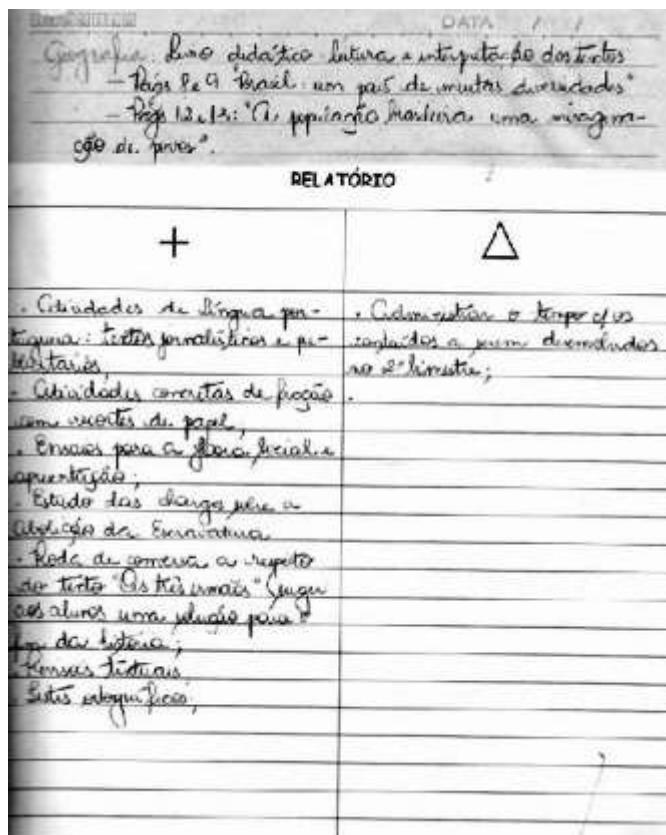 DATA / /
Geografia: Livro didático leitura e interpretação dos textos
- Págs 8 e 9 "Brasil: um país de muitas diversidades"
- Págs 12 e 13: "A população brasileira uma miscigena-
ção de povos".
RELATÓRIO
+ △
. Atividades de Língua por-
tuguesa: textos jornalísticos e pu-
blicitários,
. Atividades concretas de fração
com recortes de papel,
. Ensaios para a festa e
apresentação;
. Estudo das charges sobre a
Abolição da Escravatura
. Roda de conversa a respeito
do texto "As três irmãs" (sugeri
aos alunos uma solução para o
fim da história;
textuais
. Listas ortográficas;
. Administrar o tempo c/ os
conteúdos a serem desenvolvidos
no 2º bimestre;
.